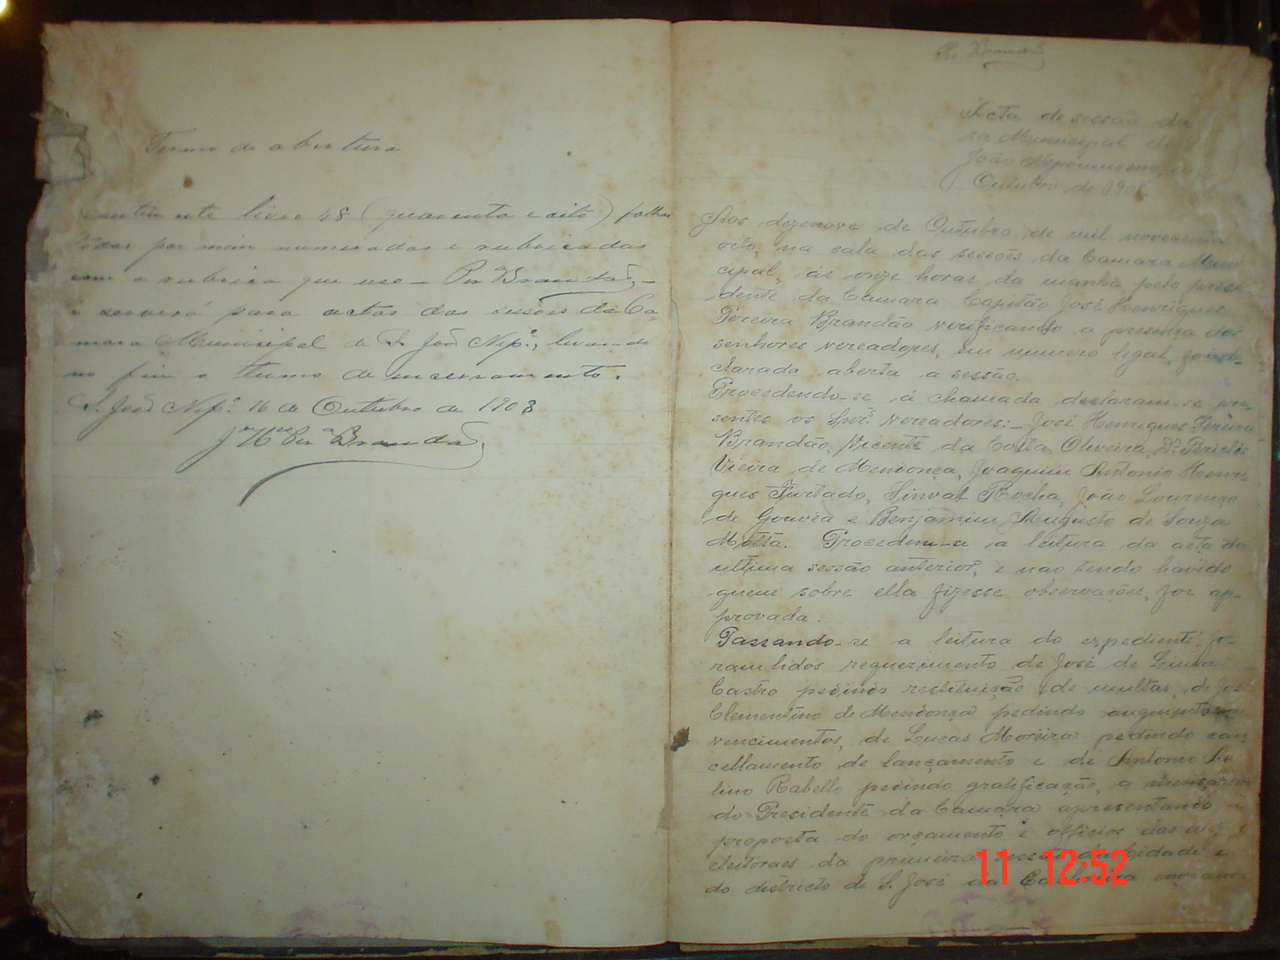 Termo de abertura
Contem este livro 48 (quarenta e oito) folhas
todas por mim numeradas e rubricadas
com a rubrica que uso - Per Brandão, -
e servirá para actas das sessões da Ca-
mara Municipal de S. João Np.º, levando
no fim o termo de encerramento.
S. João Nep.º 16 de Outubro de 1908
J.e H.es Per.a Brandão
Per. Brandão
Acta de sessão da
ra Municipal de
João Nepomuceno,
Outubro de 1908
Aos dezenove de Outubro de mil novecentos
oito, na sala das sessões da Camara Muni
cipal, ás onze horas da manhã, pelo presi-
dente da Camara Capitão José Henriques
Pereira Brandão verificando a presença dos
senhores vereadores, em numero legal, foi de-
clarada aberta a sessão.
Procedendo-se á chamada declaram-se pre-
sentes os Snrs. vereadores: - José Henriques Pereira
Brandão, Vicente da Costa Oliveira, Dr. Pericles
Vieira de Mendonça, Joaquim Antonio Henri-
ques Furtado, Sinval Rocha, João Lourenço
de Gouvêa e Benjamim Augusto de Souza
Motta. Procedeu-se a leitura da acta da
ultima sessão anterior, e não tendo havido
quem sobre ella fizesse observações, foi ap-
provada.
Passando-se a leitura do expediente: fo-
ram lidos requerimento de José de Lima
Castro pedindo restituição de multas, de José
Clementino de Mendonça pedindo augmento
vencimentos, de Lucas Moreira pedindo can
cellamento de lançamento e de Antonio
lino Rabello pedindo gratificação, a mensagem
do Presidente da Camara apresentando a
proposta do orçamento e officios das
eleitoraes da primeira cidade e
do districto de S. José da
11 12:52